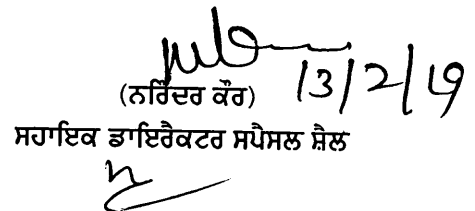 13/2/19
(ਨਰਿੰਦਰ ਕੌਰ)
ਸਹਾਇਕ ਡਾਇਰੈਕਟਰ ਸਪੈਸਲ ਸ਼ੈਲ